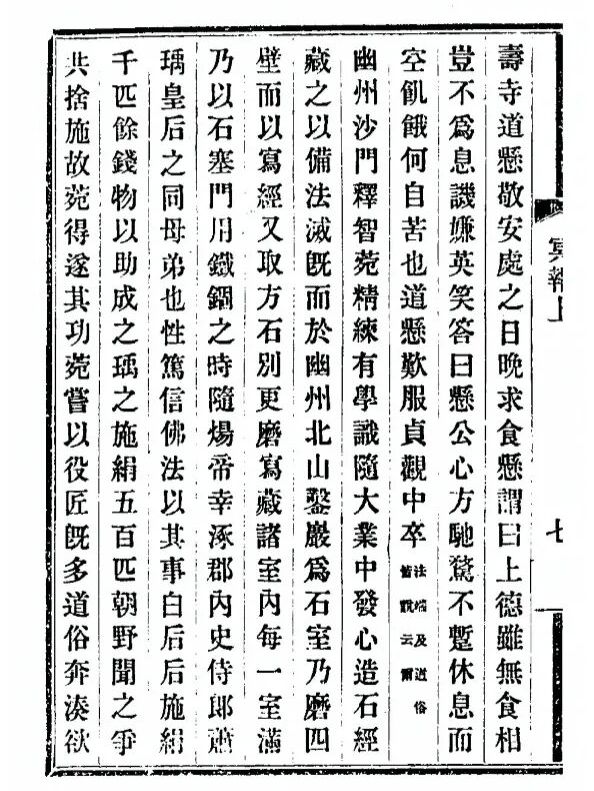 冥報上
七
壽寺道懸敬安處之日晚求食懸謂曰上德雖無食相
豈不爲息譏嫌英笑答曰懸公心方馳騖不蹔休息而
空飢餓何自苦也道懸歎服貞觀中卒法端及道俗皆說云爾
幽州沙門釋智菀精練有學識隨大業中發心造石經
藏之以備法滅旣而於幽州北山鑿巖爲石室乃磨四
壁而以寫經又取方石別更磨寫藏諸室內每一室滿
乃以石塞門用鐵錮之時隨煬帝幸涿郡內史侍郎蕭
瑀皇后之同母弟也性篤信佛法以其事白后后施絹
千匹餘錢物以助成之瑀之施絹五百匹朝野聞之爭
共捨施故菀得遂其功菀嘗以役匠旣多道俗奔湊欲